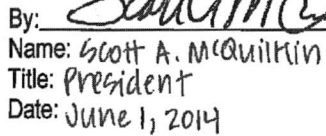 By:
Name: Scott A. McQuilkin
Title: President
Date: June 1, 2014